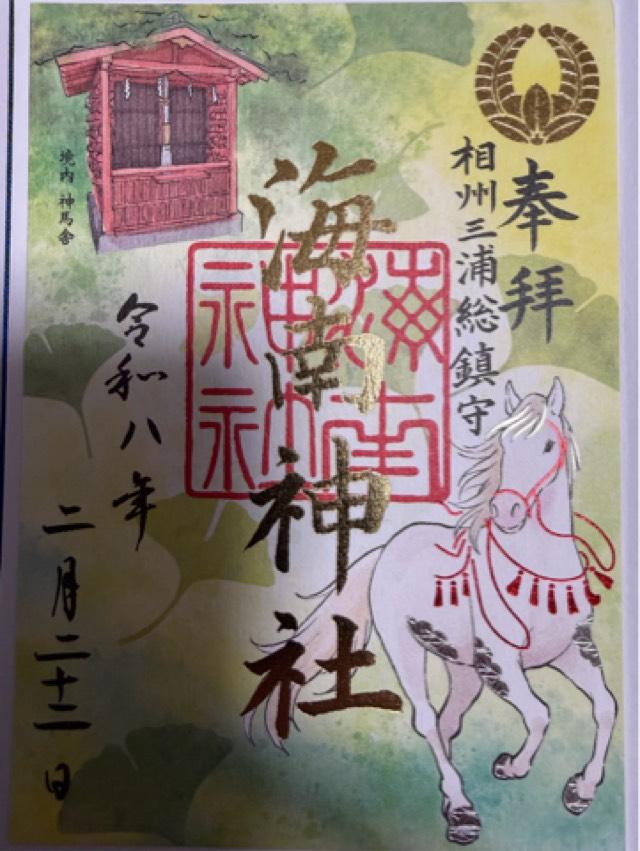 奉拝
相州三浦総鎮守
海南神社
境内 神馬舎
令和八年
二月二十二日